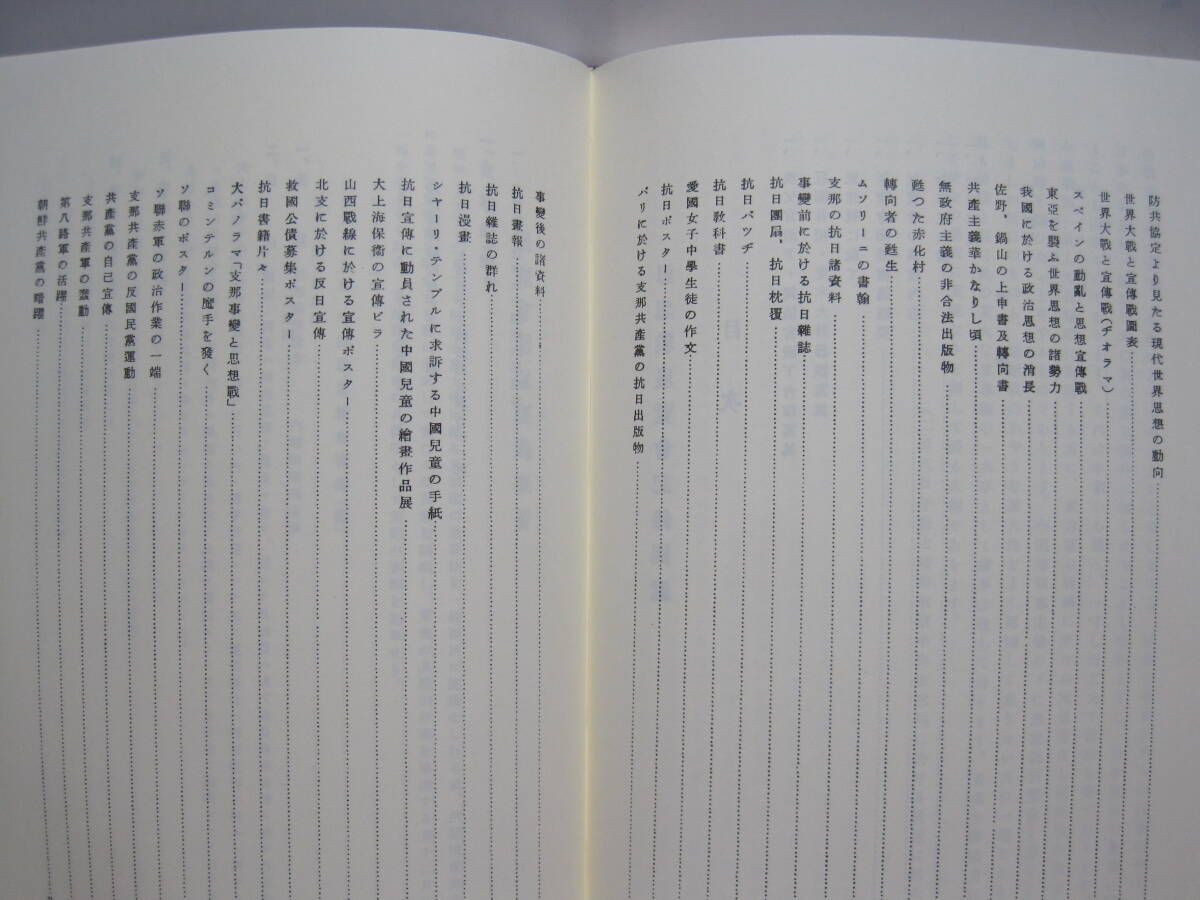 防共協定より見たる現代世界思想の動向
世界大戰と宣傳戰圖表
世界大戰と宣傳戰（ヂオラマ）
スペインの動亂と思想宣傳戰
東亞を襲ふ世界思想の諸勢力
我國に於ける政治思想の消長
佐野、鍋山の上申書及轉向書
共產主義華かなりし頃
無政府主義の非合法出版物
甦つた赤化村
轉向者の甦生
ムソリーニの書翰
支那の抗日諸資料
事變前に於ける抗日雜誌
抗日團扇、抗日枕覆
抗日バツヂ
抗日敎科書
愛國女子中學生徒の作文
抗日ポスター
パリに於ける支那共產黨の抗日出版物
事變後の諸資料
抗日畫報
抗日雜誌の群れ
抗日漫畫
シヤーリ・テンプルに求訴する中國兒童の手紙
抗日宣傳に動員された中國兒童の繪畫作品展
大上海保衛の宣傳ビラ
山西戰線に於ける宣傳ポスター
北支に於ける反日宣傳
救國公債募集ポスター
抗日書籍片々
大パノラマ「支那事變と思想戰」
コミンテルンの魔手を發く
ソ聯のポスター
ソ聯赤軍の政治作業の一端
支那共產黨の反國民黨運動
共產黨の自己宣傳
支那共產軍の蠢動
第八路軍の活躍
朝鮮共產黨の暗躍